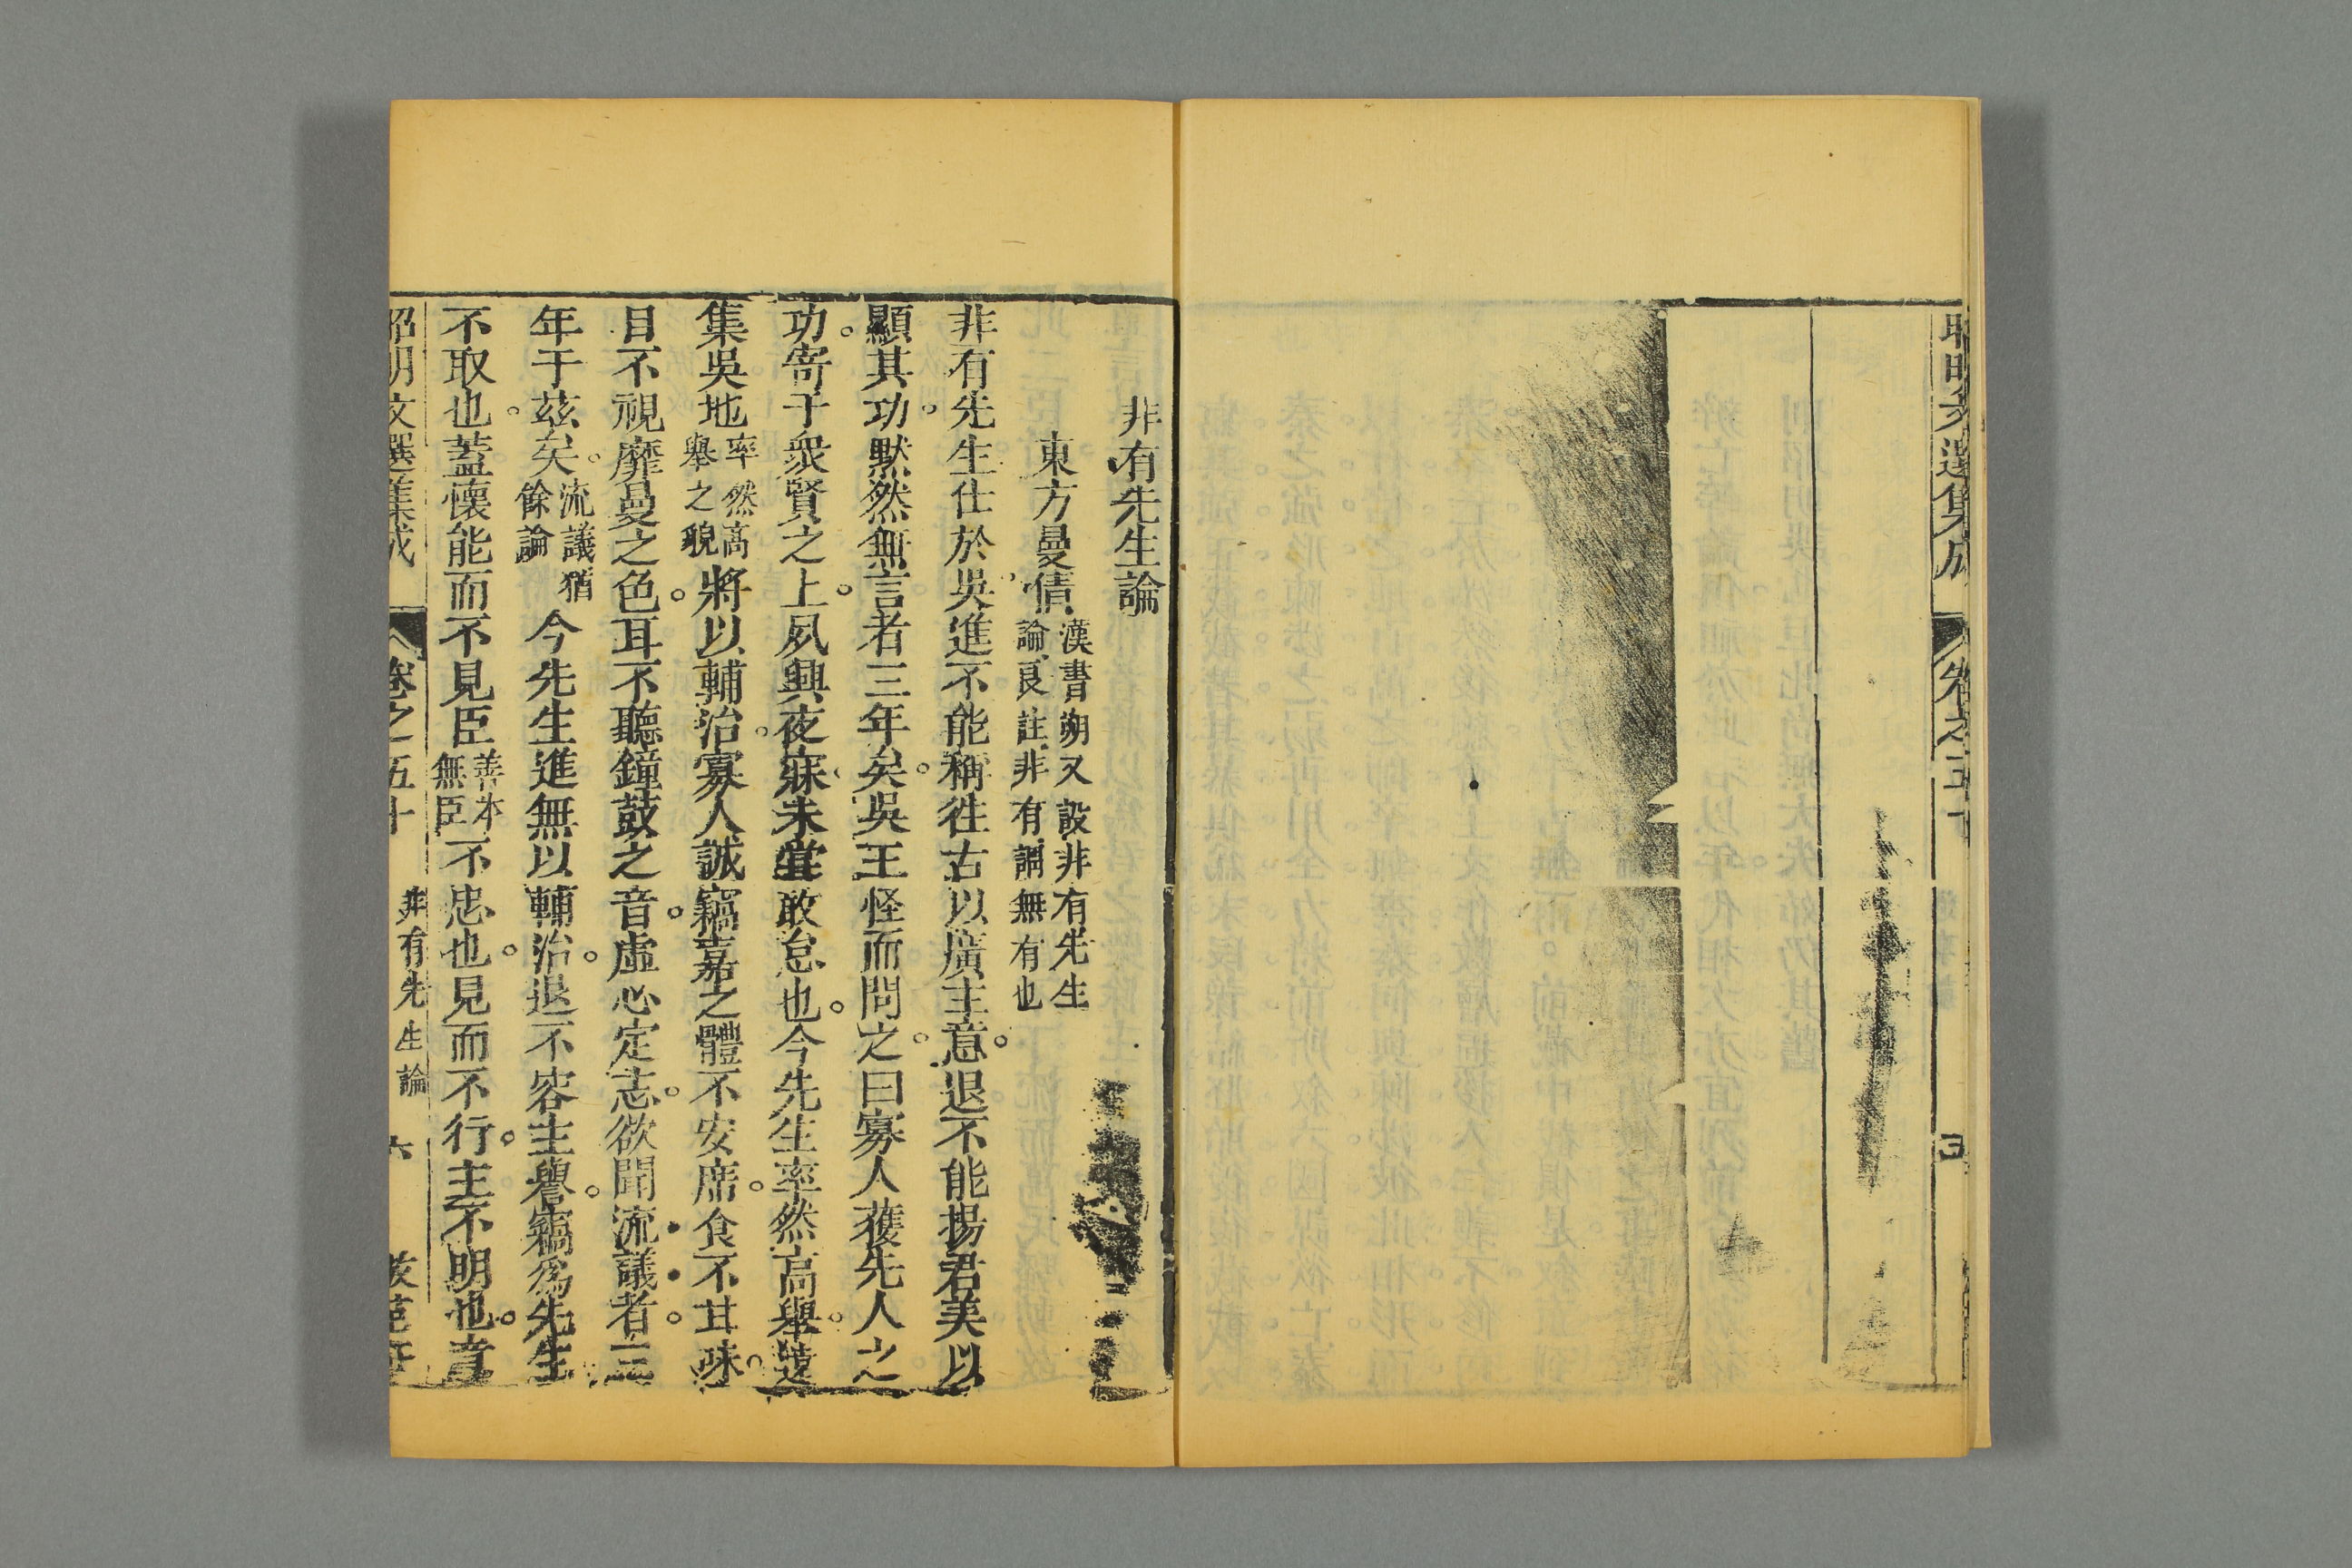 昭明文選集成 卷之五十 五
非有先生論
東方曼倩 漢書朔又設非有先生論良註非有謂無有也
非有先生仕於吳進不能稱徃古以廣主意退不能揚君美以
顯其功默然無言者三年矣吳王怪而問之曰寡人獲先人之
功寄于衆賢之上夙興夜寐未嘗敢怠也今先生率然高舉遠
集吳地率然高舉之貌將以輔治寡人誠竊嘉之體不安席食不甘味
目不視靡曼之色耳不聽鐘鼓之音虛心定志欲聞流議者三
年于茲矣流議猶餘論今先生進無以輔治退不容主譽竊爲先生
不取也蓋懷能而不見臣善本無臣不忠也見而不行主不明也意
昭明文選集成 卷之五十 非有先生論 六